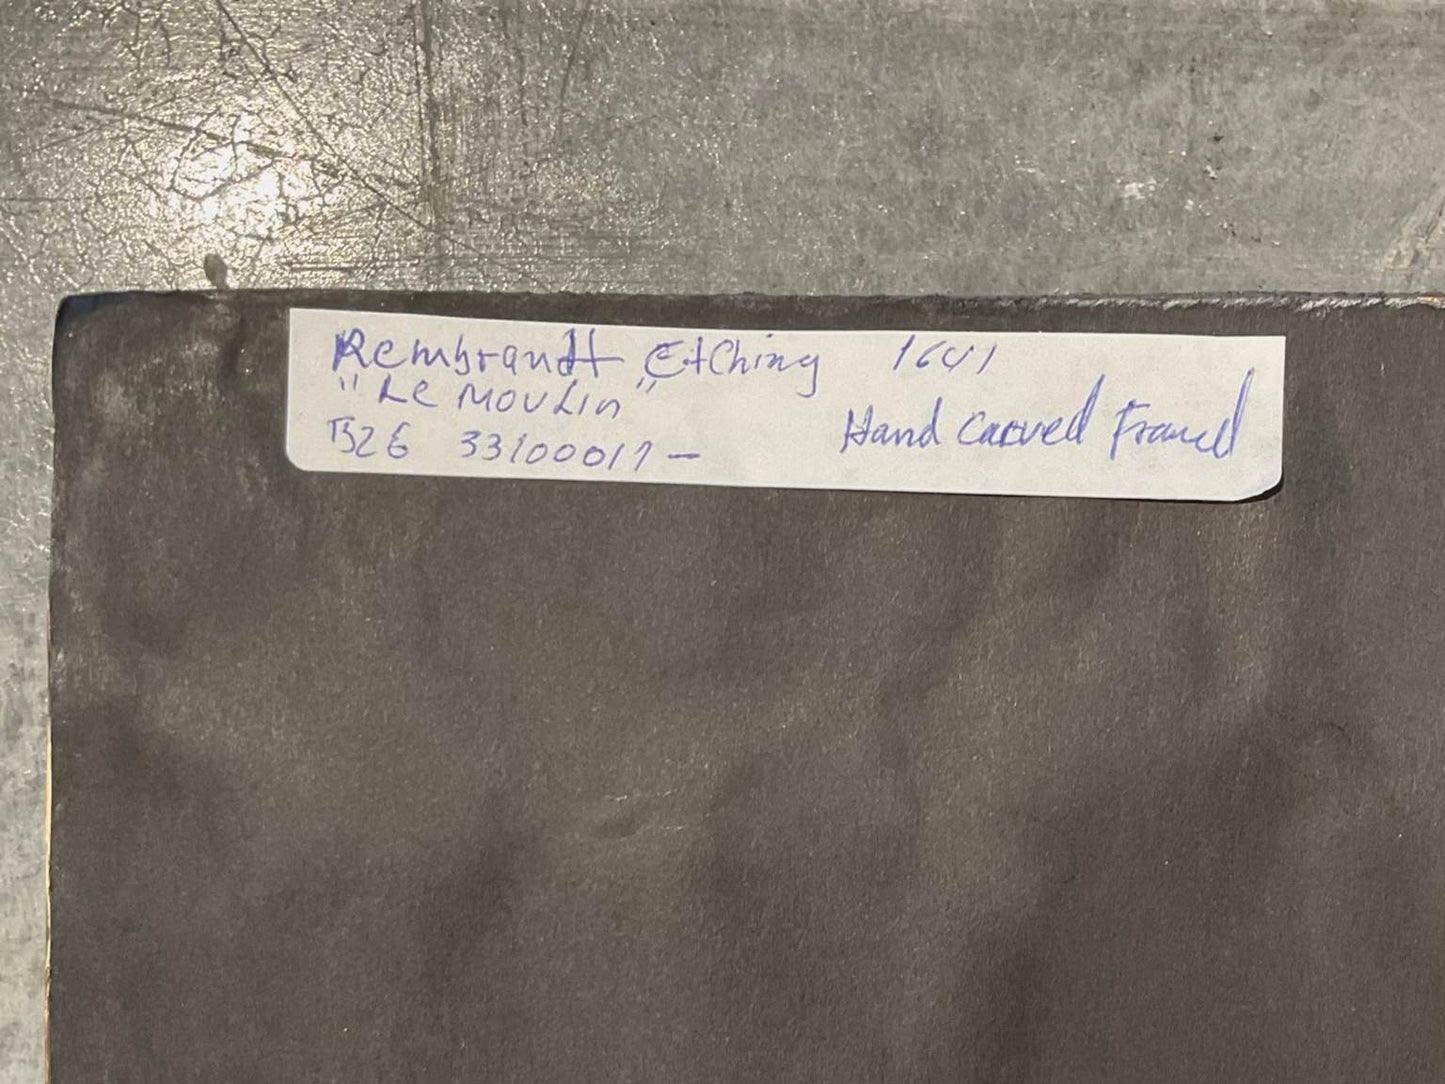 Rembrandt Etching 1641
"Le Moulin"
Hand Carved Framed
33100017-